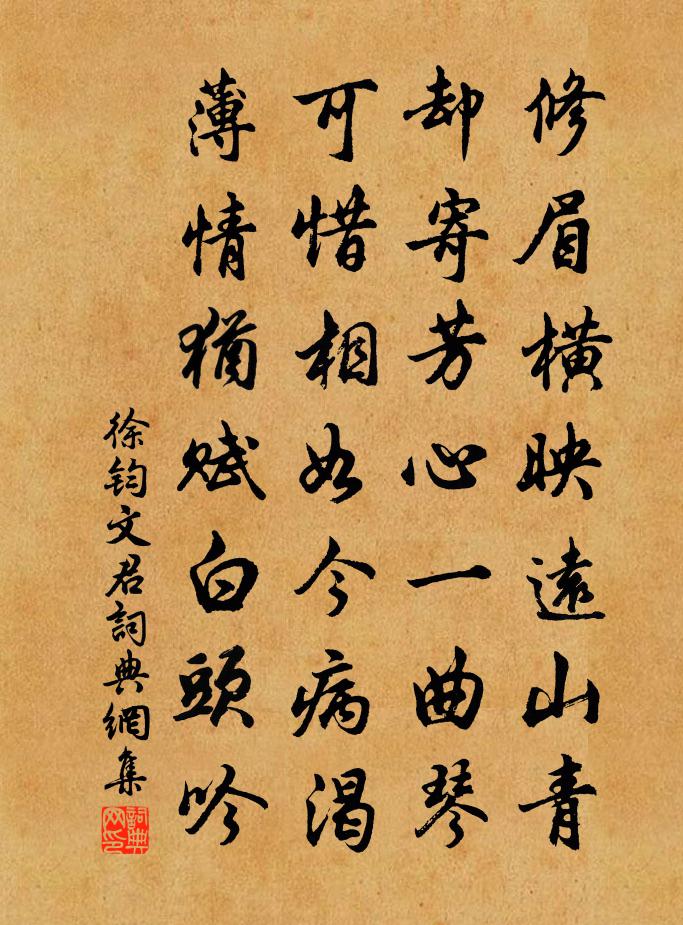 修眉橫映遠山青
却寄芳心一曲琴
可惜相如今病渴
薄情猶賦白頭吟
徐鈞文君詞典網集
詞典网印